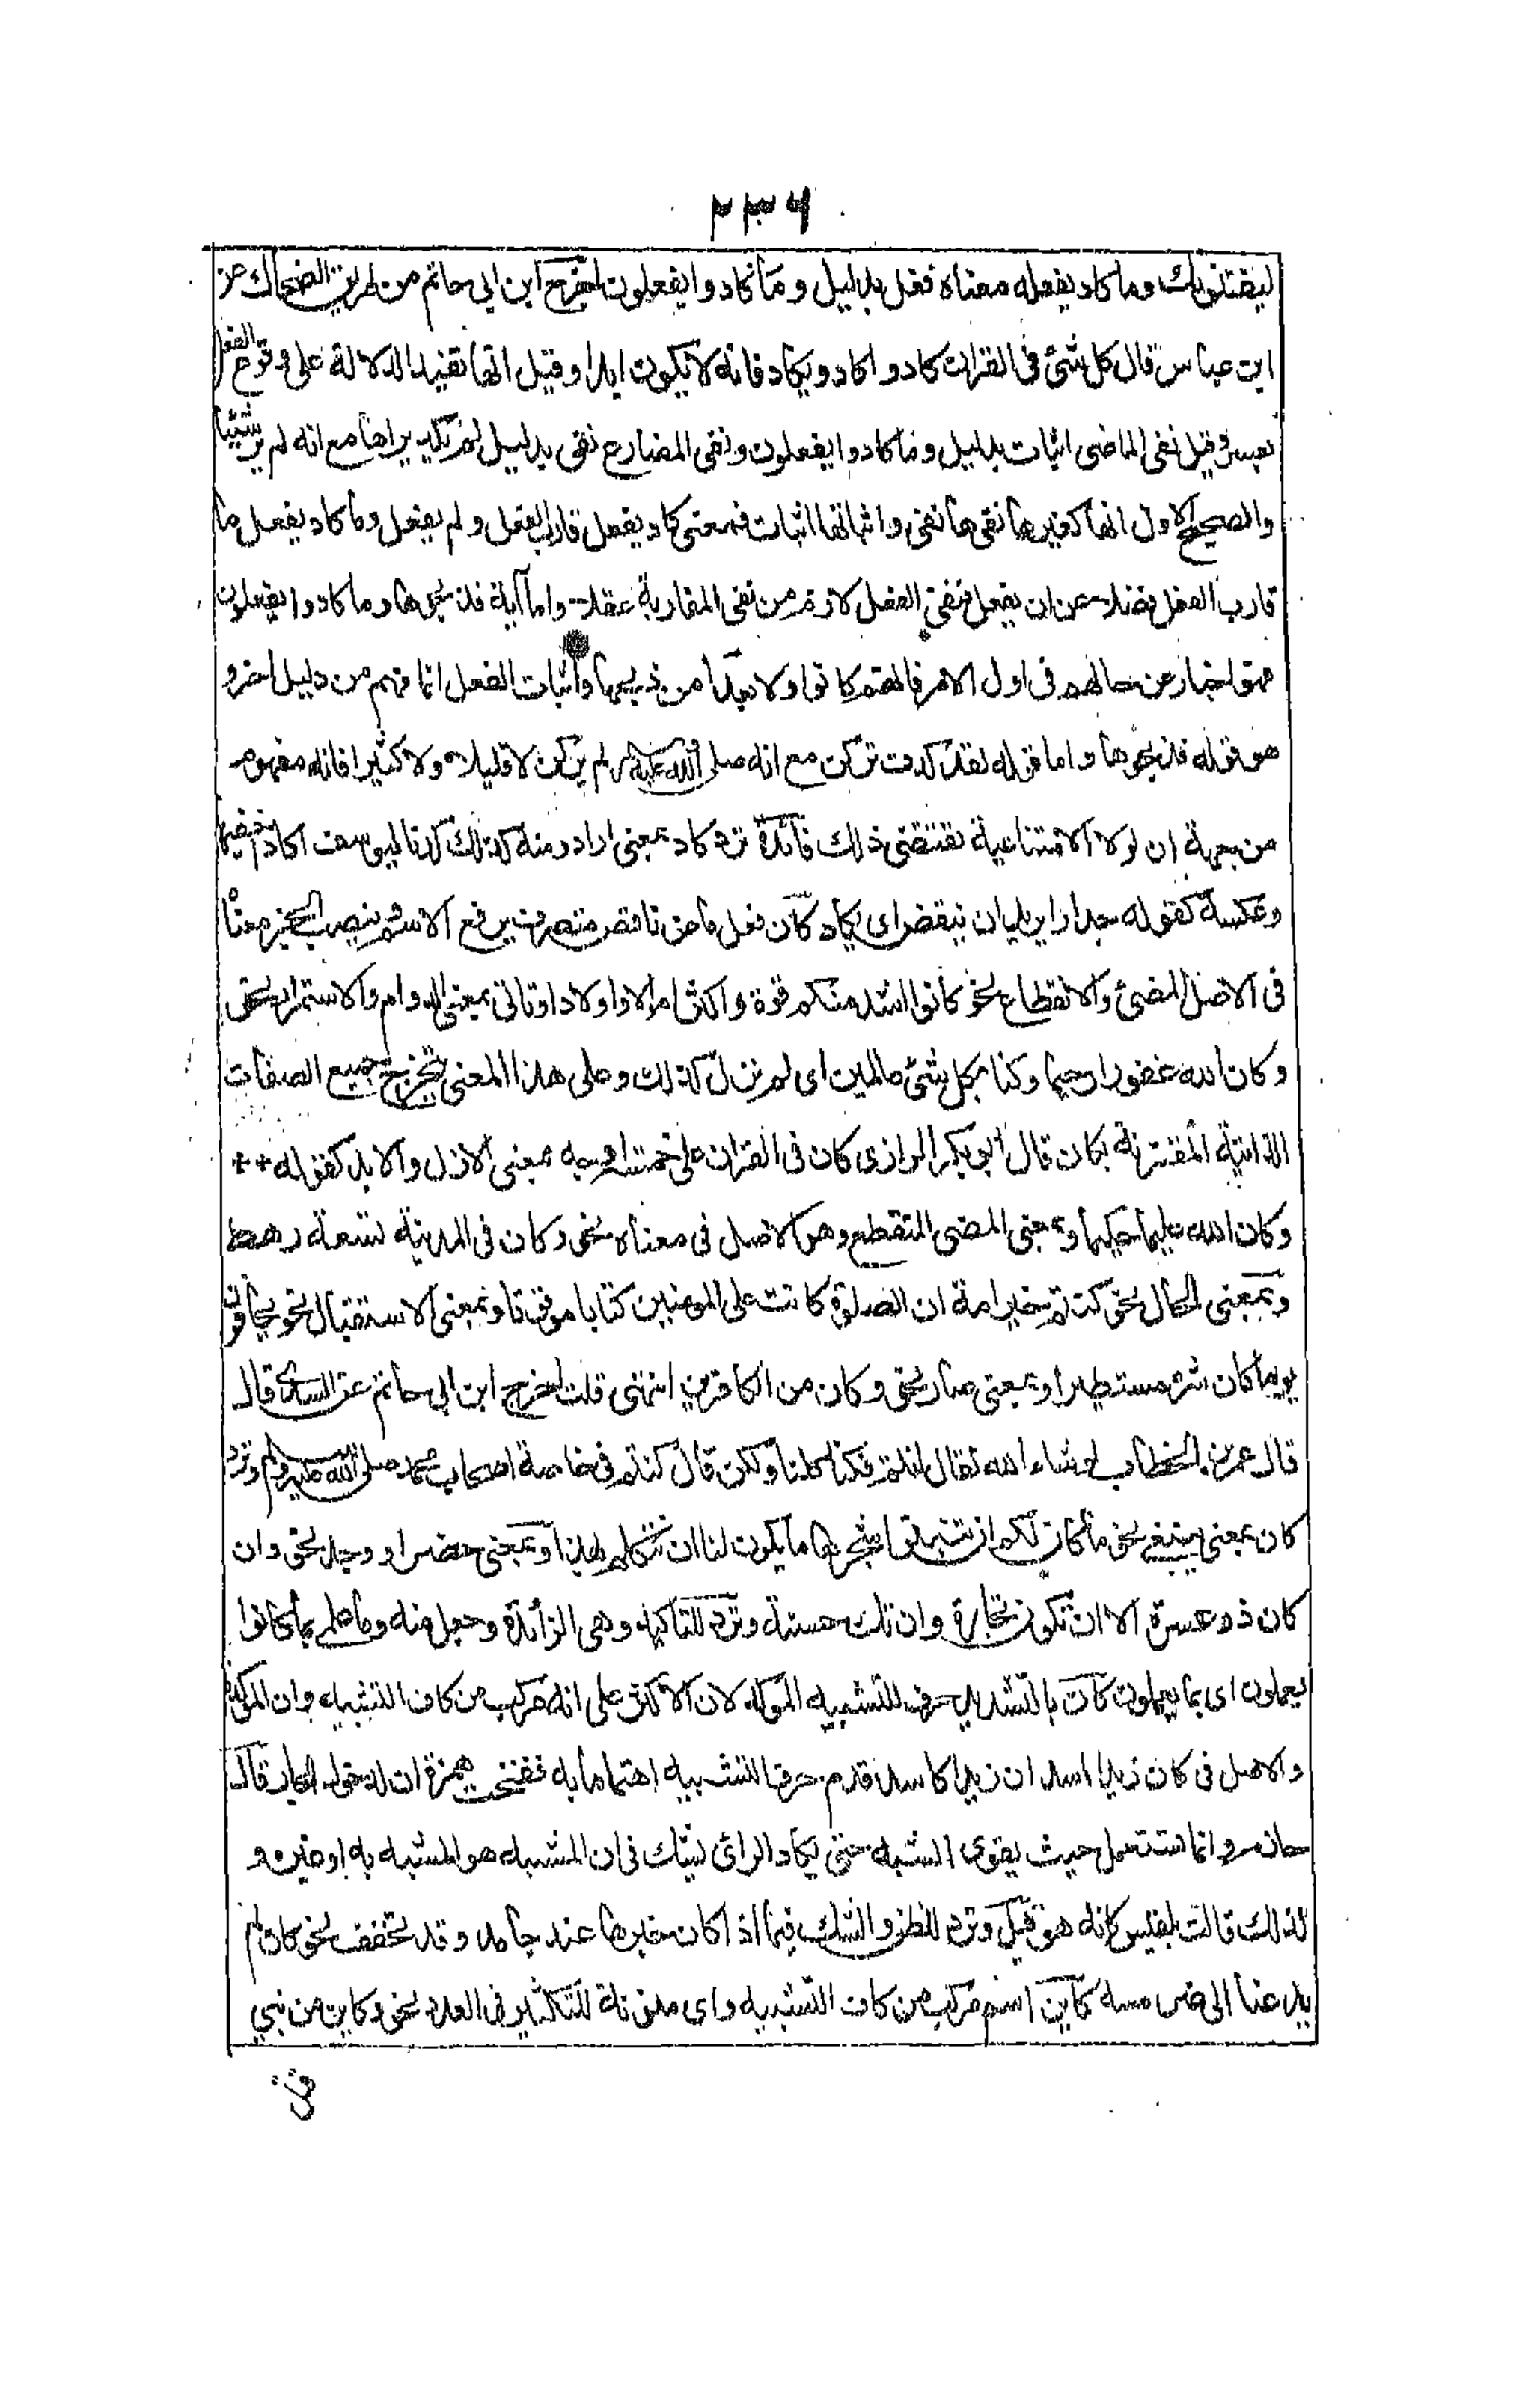 ٢٣٦
ليفتنونك وما كاد يفعله معناه فعل بدليل وما كادوا يفعلون اخرج ابن ابي حاتم من طريق الضحاك عن
ابن عباس قال كل شئ فى القران كاد واكاد ويكاد فانه لا يكون ابدا وقيل انها تفيد الدلالة على وقوع الفعل
بعسر وقيل نفى الماضى اثبات بدليل وما كادوا يفعلون ونفى المضارع نفى بدليل لم يكد يراها مع انه لم ير شيئا
والصحيح الاول انها كغيرها نفيها نفى واثباتها اثبات فمعنى كاد يفعل قارب الفعل ولم يفعل وما كاد يفعل ما
قارب الفعل فضلا عن ان يفعل فنفى الفعل لازم من نفى المقاربة عقلا واما آية فذبحوها وما كادوا يفعلون
فهو اخبار عن حالهم فى اول الامر فانهم كانوا اولا بعدا من ذبحها واثبات الفعل انما فهم من دليل اخر و
هو قوله فذبحوها واما قوله لقد كدت تركن مع انه صلى الله عليه وسلم لم يركن لا قليلا ولا كثيرا فانه مفهوم
من جهة ان لولا الامتناعية تقتضى ذلك فائدة ترد كاد بمعنى اراد ومنه كذلك كدنا ليوسف اكاد اخفيها
وعكسه كقوله جدارا يريد ان ينقض اى يكاد كان فعل ماض ناقص متصرف يرفع الاسم وينصب الخبر معناه
فى الاصل المضى والانقطاع نحو كانوا اشد منكم قوة واكثر اموالا واولادا وتاتى بمعنى الدوام والاستمرار نحو
وكان الله غفورا رحيما وكنا بكل شئ عالمين اى لم نزل كذلك وعلى هذا المعنى تتخرج جميع الصفات
الذاتية المقترنة بكان قال ابو بكر الرازى كان فى القران على خمسة اوجه بمعنى الازل والابد كقوله
وكان الله عليما حكيما وبمعنى المضى المنقطع وهو الاصل فى معناه نحو وكان فى المدينة تسعة رهط
وبمعنى الحال نحو كنتم خير امة ان الصلوة كانت على المومنين كتابا موقوتا وبمعنى الاستقبال نحو يخافون
يوما كان شره مستطيرا وبمعنى صار نحو وكان من الكافرين انتهى قلت اخرج ابن ابي حاتم عن السدى قال
قال عمر بن الخطاب لو شاء الله لقال انتم فكنا كلنا ولكن قال كنتم فى خاصة اصحاب محمد صلى الله عليه وسلم وترد
كان بمعنى ينبغى نحو ما كان لكم ان تنبتوا شجرها ما يكون لنا ان نتكلم بهذا وبمعنى حضر او وجد نحو وان
كان ذو عسرة الا ان تكون تجارة وان تك حسنة وترد للتاكيد وهى الزائدة وجعل منه وما علمى بما كانوا
يعملون اى بما يعملون كان بالتشديد حرف للتشبيه المؤكد لان الاكثر على انه مركب من كاف التشبيه وان المؤكدة
والاصل فى كان زيدا اسد ان زيدا كاسد قدم حرف التشبيه اهتماما به ففتحت همزة ان لدخول الجار قال
حازم وانما تستعمل حيث يقوى الشبه حتى يكاد الرائى يشك فى ان المشبه هو المشبه به او غيره و
لذلك قالت بلقيس كانه هو قيل وترد للظن والشك فيما اذا كان خبرها عند جامد وقد تخفف نحو كان لم
يدعنا الى ضر مسه كاين اسم مركب من كاف التشبيه واى منونة للتكثير فى العدد نحو وكاين من نبى